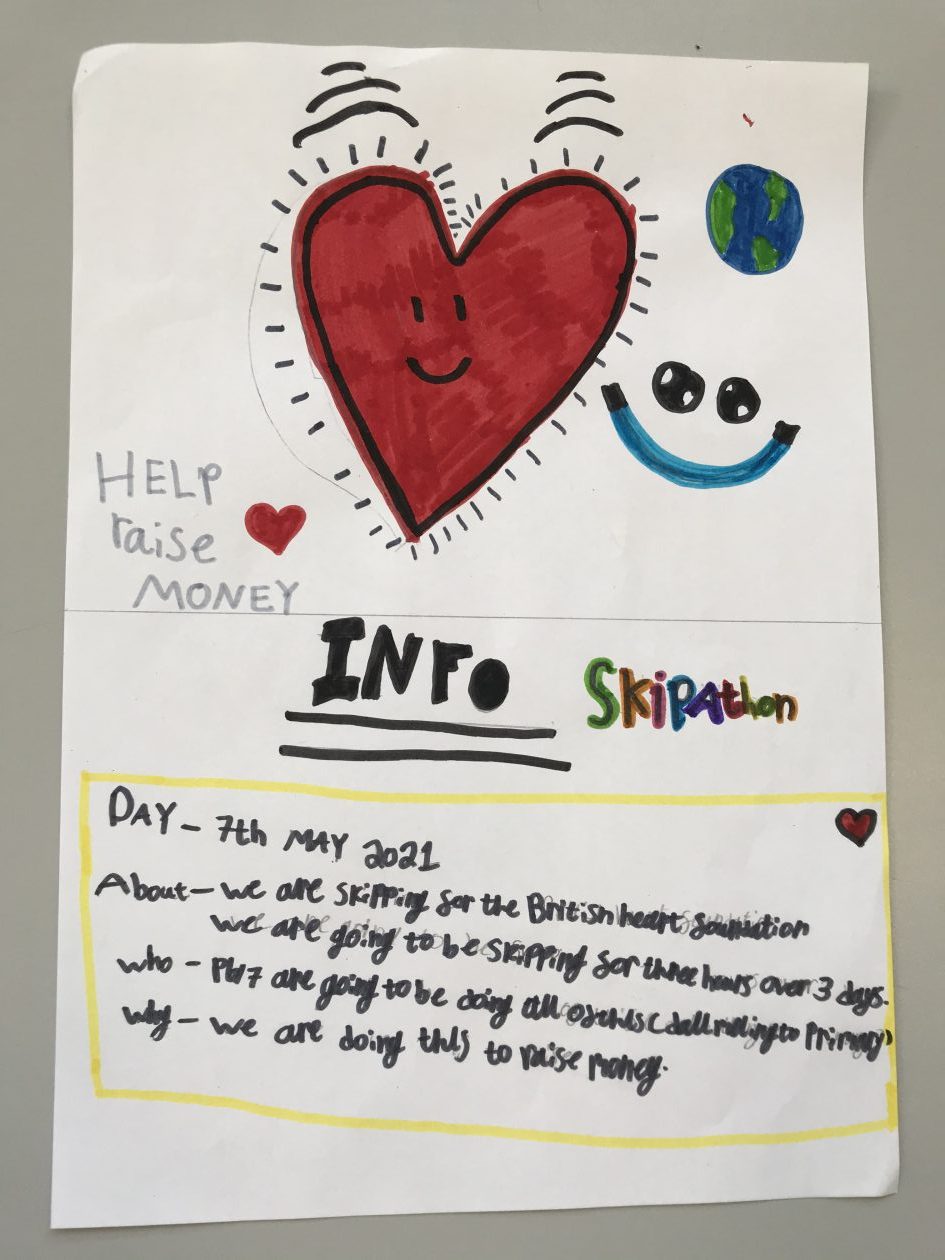 HELP
raise
MONEY
INFO
SKiPAthon
DAY - 7th MAY 2021
About - we are skipping for the British heart foundation
we are going to be skipping for three hours over 3 days.
who - P6/7 are going to be doing all of this ( primary)
why - we are doing this to raise money.